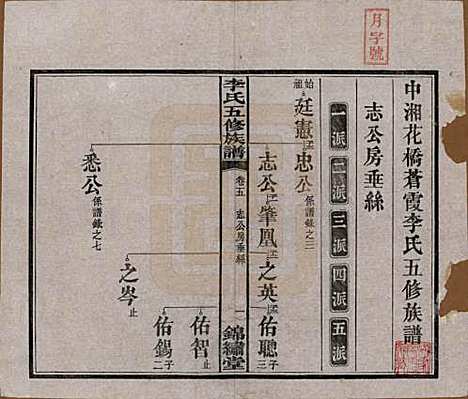 月字號
中湘花橋蒼霞李氏五修族譜
志公房垂絲
一派 二派 三派 四派 五派
始祖
廷憲
忠公 係譜錄之三
志公 肇凰 之英 佑聰 三子
李氏五修族譜
卷五
志公房垂絲
一
錦繡堂
佑智 止
之岑 止
佑錫 二子
悉公 係譜錄之七